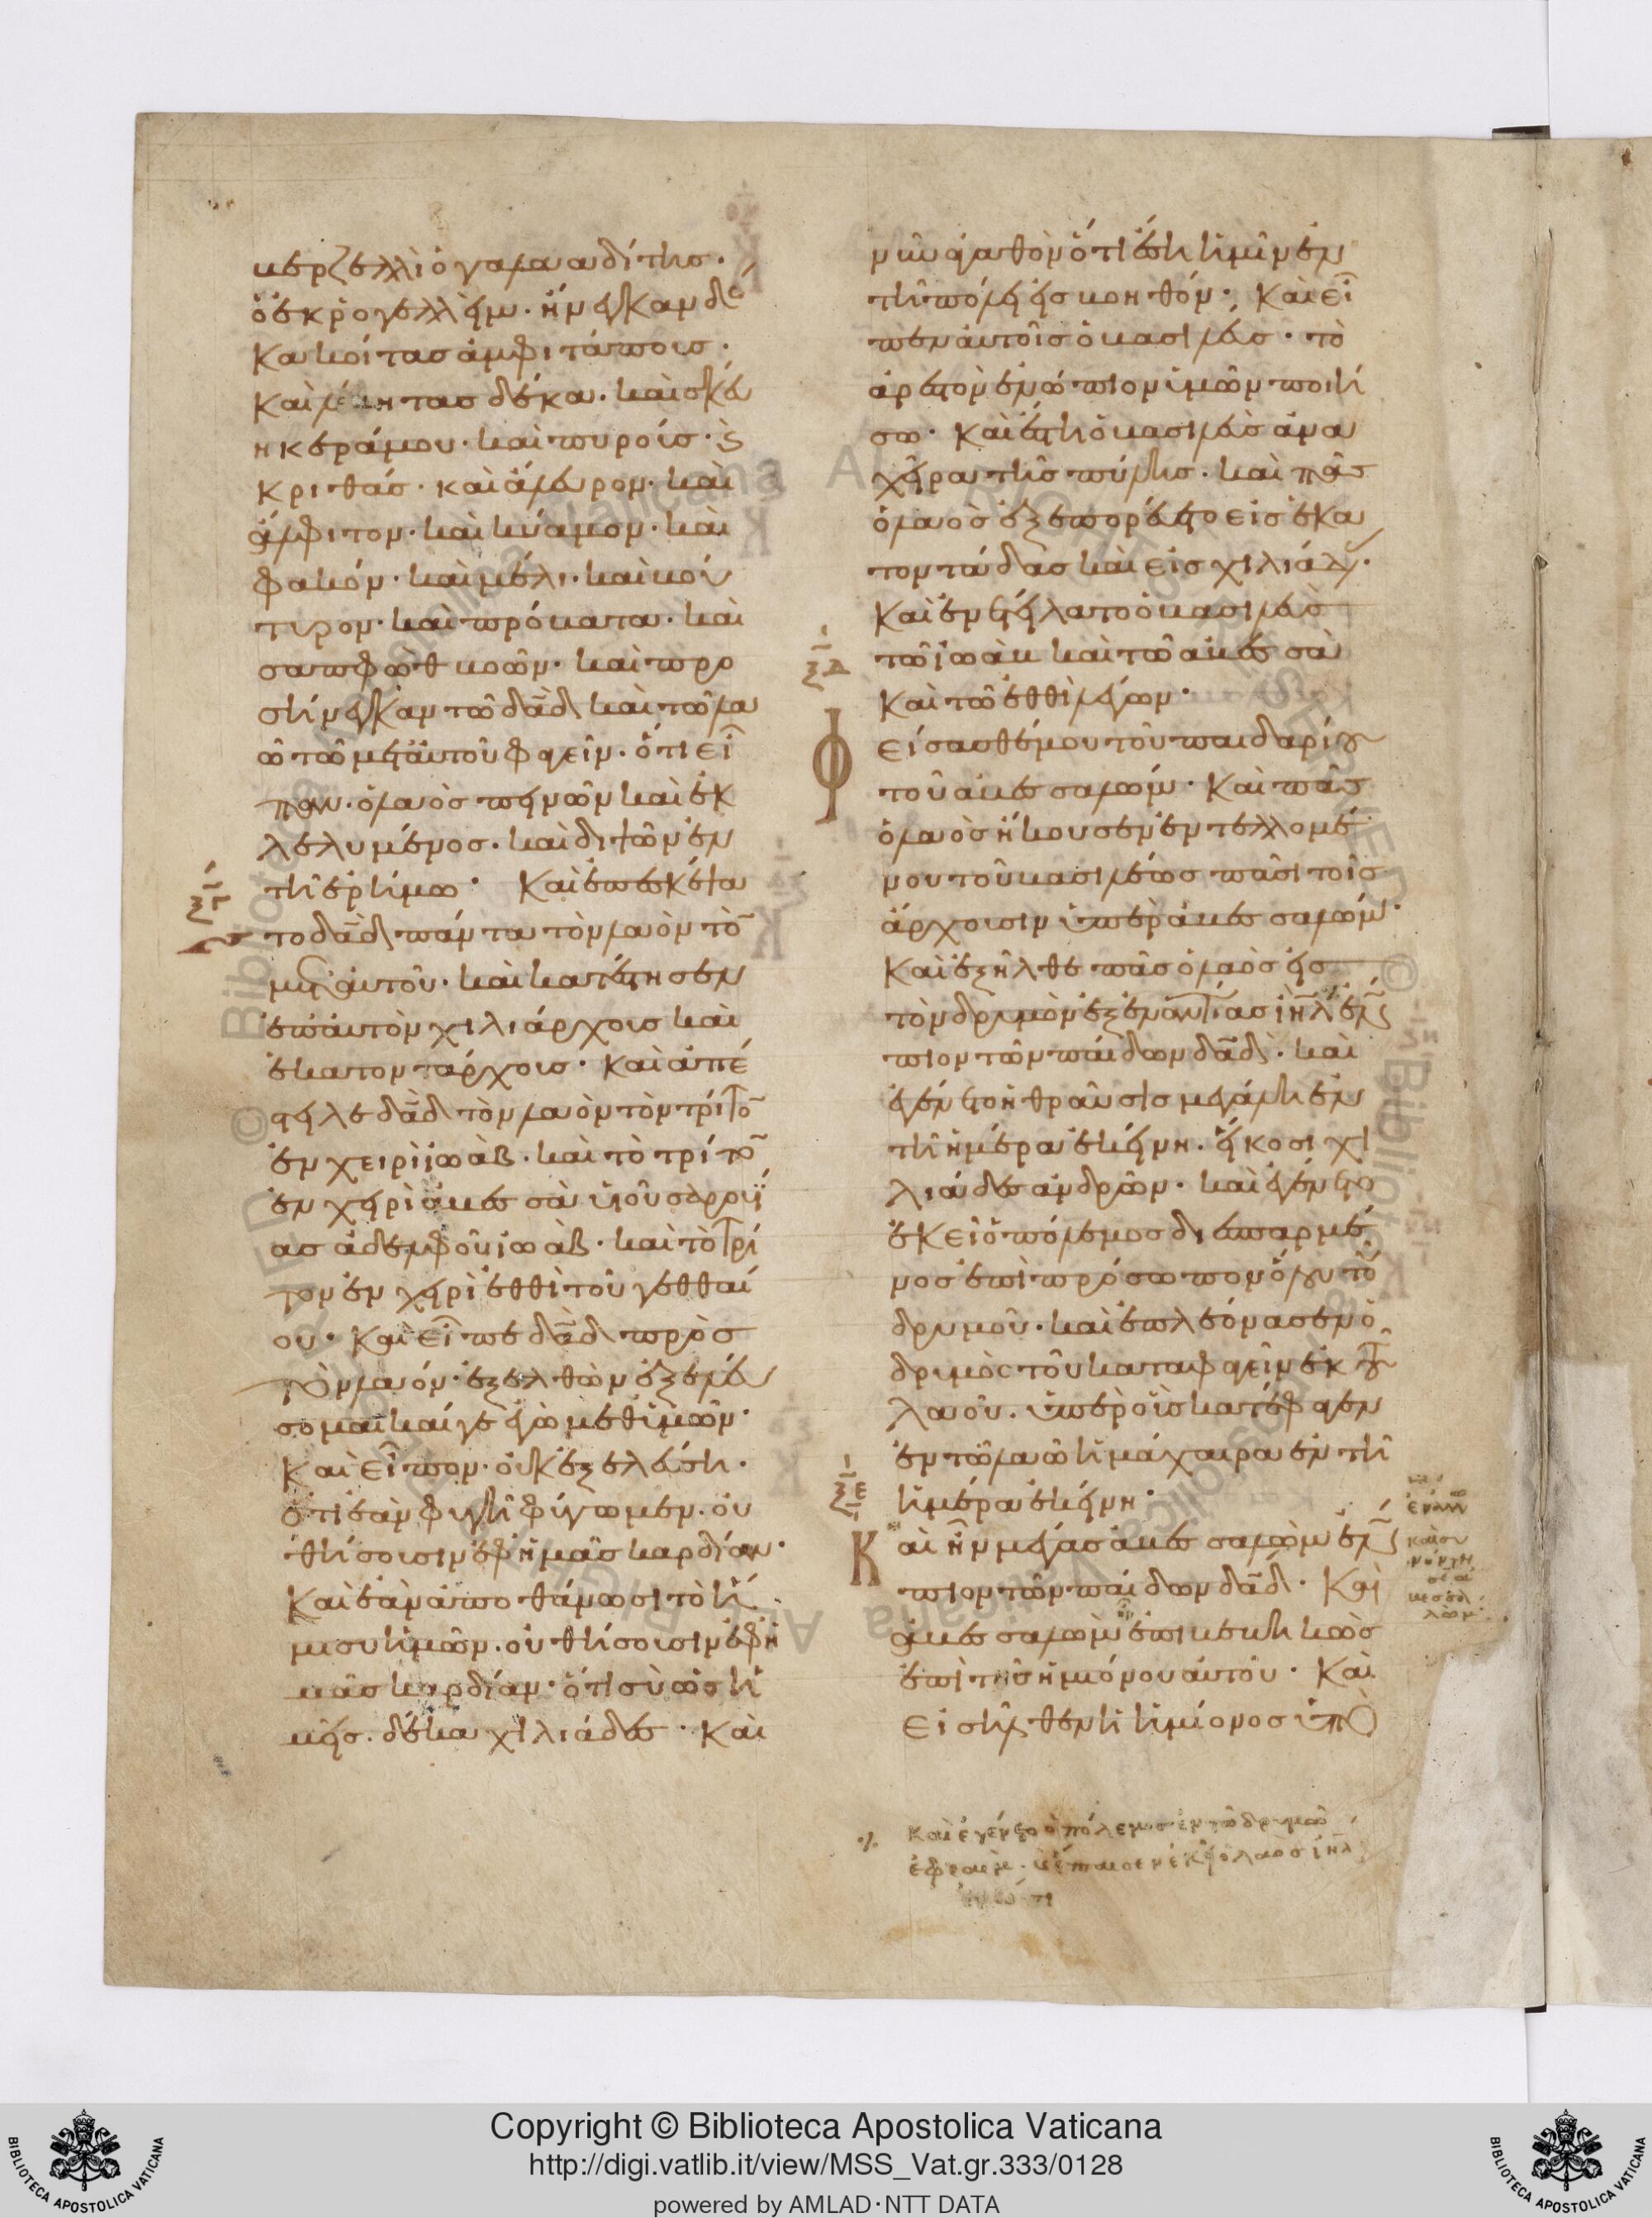 βερζελλὶ ὁ γαλααδίτης·
ὁ ἐκ ρογελλεὶμ· ἤνεγκαν δέ
κα κοίτας ἀμφιτάποις·
καὶ λέβητας δέκα· καὶ σκεύ
η κεράμου· καὶ πυροὺς· ϗ
κριθάς· καὶ ἄλευρον· καὶ
ἄλφιτον· καὶ κύαμον· καὶ
φακόν· καὶ μέλι· καὶ βού
τυρον· καὶ πρόβατα· καὶ
σαπφὼθ βοῶν· καὶ προ
σήνεγκαν τῶ δα̅δ̅ καὶ τῶ λα
ῶ τῶ μετ αὐτοῦ φαγεῖν· ὅτι εἶ
πον· ὁ λαὸς πεινῶν καὶ ἐκ
λελυμένος· καὶ διψῶν ἐν
ξγ
τῆ ἐρήμω· Καὶ ἐπεσκέψα
το δα̅δ̅ πάντα τὸν λαὸν τὸ̅
μετ αὐτοῦ· καὶ κατέστησεν
ἐπ αὐτὸν χιλιάρχους καὶ
ἑκατοντάρχους· Καὶ ἀπέ
στειλε δα̅δ̅ τὸν λαὸν τὸν τρίτο̅
ἐν χειρὶ ἰωὰβ· καὶ τὸ τρίτο̅
ἐν χειρὶ ἀβεσσὰ υἱοῦ σαρουΐ
ας ἀδελφοῦ ἰωὰβ· καὶ τὸ τρί
τον ἐν χειρὶ ἐθθὶ τοῦ γεθθαί
ου· Καὶ εἶπε δα̅δ̅ πρὸς
τὸν λαόν· ἐξελθὼν ἐξελεύ
σομαι καίγε ἐγὼ μεθ ὑμῶν·
Καὶ εἶπον· οὐκ ἐξελεύση·
ὅτι ἐὰν φυγῆ φύγωμεν· οὐ
θήσουσιν ἐφ ἡμᾶς καρδίαν·
Καὶ ἐὰν ἀποθάνωσι τὸ ἥ
μισυ ἡμῶν· οὐ θήσουσιν ἐφ ἡ
μᾶς καρδίαν· ὅτι σὺ ὡς ἡ
μεῖς· δέκα χιλιάδες· Καὶ
νῦν ἀγαθὸν ὅτι ἔση ἡμῖν ἐν
τῆ πόλει εἰς βοηθόν· Καὶ εἶ
πεν αὐτοῖς ὁ βασιλεύς· τὸ
ἀρεστὸν ἐνώπιον ὑμῶν ποιή
σω· Καὶ ἔστη ὁ βασιλεὺς ἀνα
χεῖρα τῆς πύλης· καὶ πᾶς
ὁ λαὸς ἐξεπορεύετο εἰς ἑκα
τοντάδας καὶ εἰς χιλιάδας·
Καὶ ἐνετείλατο ὁ βασιλεὺς
ξδ
τῶ ἰωὰβ καὶ τῶ ἀβεσσὰ
Καὶ τῶ ἐθθὶ λέγων·
Φείσασθέ μου τοῦ παιδαρίου
τοῦ ἀβεσσαλώμ· Καὶ πᾶς
ὁ λαὸς ἤκουσεν ἐντελλομέ
νου τοῦ βασιλέως πᾶσι τοῖς
ἄρχουσιν ὑπὲρ ἀβεσσαλώμ·
Καὶ ἐξῆλθε πᾶς ὁ λαὸς εἰς
τὸν δρυμὸν ἐξεναντίας ἰη̅λ̅ ἐνώ
πιον τῶν παίδων δα̅δ̅· καὶ
ἐγένετο ἡ θραῦσις μεγάλη ἐν
τῆ ἡμέρα ἐκείνη· εἴκοσι χι
λιάδες ἀνδρῶν· καὶ ἐγένετο
ἐκεῖ ὁ πόλεμος διεσπαρμέ
νος ἐπὶ πρόσωπον ὅλου τοῦ
δρυμοῦ· καὶ ἐπλεόνασεν ὁ
δρυμὸς τοῦ καταφαγεῖν ἐκ τοῦ
λαοῦ· ὑπὲρ οὓς κατέφαγεν
ἐν τῶ λαῶ ἡ μάχαιρα ἐν τῆ
ξε
ἡμέρα ἐκείνη·
Καὶ ἦν μέγας ἀβεσσαλὼμ ἐνώ
πιον τῶν παίδων δα̅δ̅· Καὶ
ἀβεσσαλὼμ ἐπιβεβηκὼς
ἐπὶ τῆς ἡμιόνου αὐτοῦ· Καὶ
Εἰσῆλθεν ἡ ἡμίονος ὑπὸ
Καὶ ἐγένετο ὁ πόλεμος ἐν τῶ δρυμῶ
ἐφραὶμ·
Biblioteca Apostolica Vaticana
ALL RIGHTS RESERVED
©
Copyright © Biblioteca Apostolica Vaticana
http://digi.vatlib.it/view/MSS_Vat.gr.333/0128
powered by AMLAD·NTT DATA
BIBLIOTECA APOSTOLICA VATICANA
BIBLIOTECA APOSTOLICA VATICANA